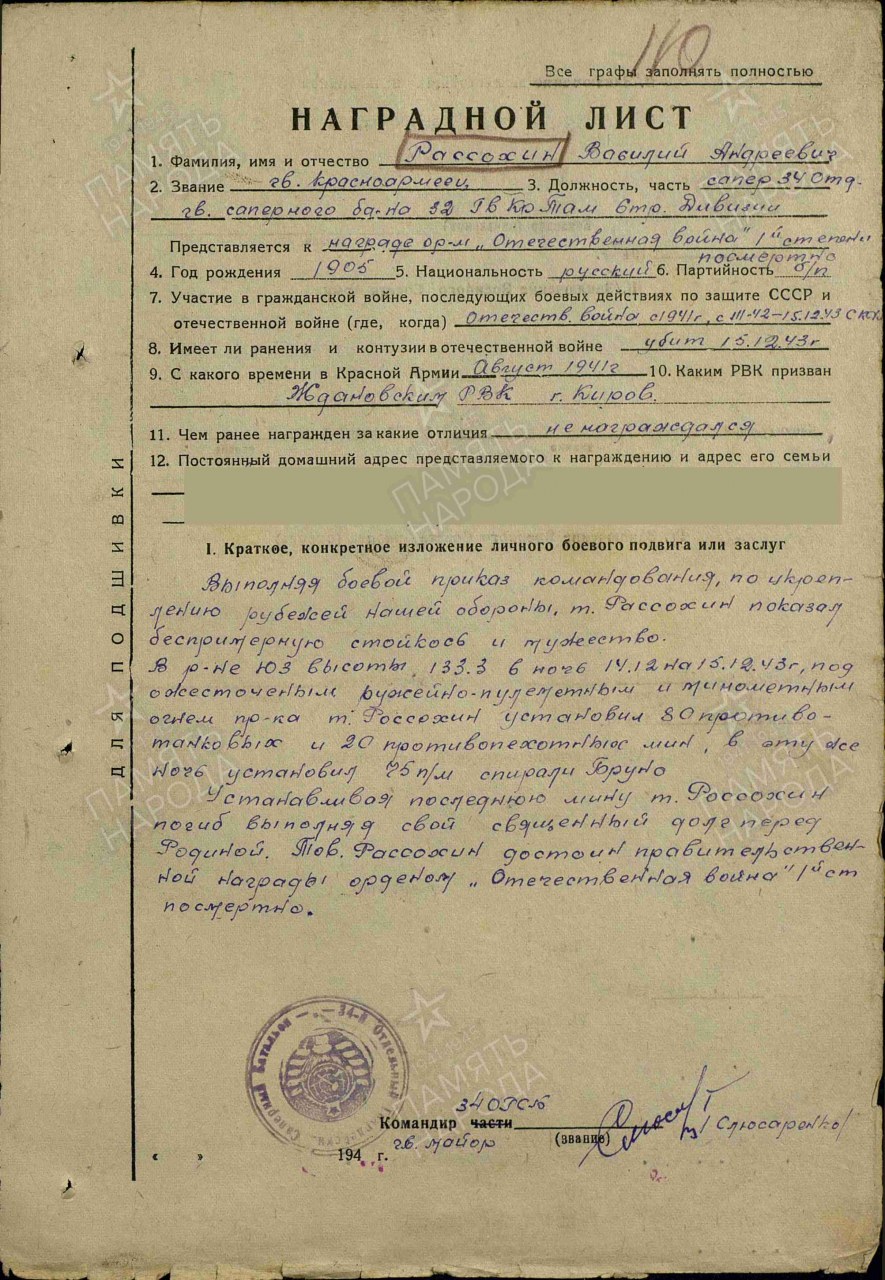 110
Все графы заполнять полностью
НАГРАДНОЙ ЛИСТ
1. Фамилия, имя и отчество Рассохин Василий Андреевич
2. Звание гв. Красноармеец 3. Должность, часть сапер 34 отд.
гв. саперного б-на 32 Гв Кр. Там Стр. Дивизии
Представляется к награде орд-м „Отечественная война" 1й степени
посмертно
4. Год рождения 1905 5. Национальность русский 6. Партийность б/п
7. Участие в гражданской войне, последующих боевых действиях по защите СССР и
отечественной войне (где, когда) Отечеств. война с 1941г, с III-42-15.12.43
8. Имеет ли ранения и контузии в отечественной войне убит 15.12.43г
9. С какого времени в Красной Армии Август 1941г 10. Каким РВК призван
Ждановским РВК г. Киров.
11. Чем ранее награжден за какие отличия не награждался
12. Постоянный домашний адрес представляемого к награждению и адрес его семьи
I. Краткое, конкретное изложение личного боевого подвига или заслуг
Выполняя боевой приказ командования, по укреп-
лению рубежей нашей обороны, т. Рассохин показал
беспримерную стойкось и мужество.
В р-не ЮЗ высоты 133.3 в ночь 14.12 на 15.12.43г, под
ожесточеным ружейно-пулеметным и минометным
огнем пр-ка т. Россохин установил 80 противо-
танковых и 20 противопехотных мин, в эту же
ночь установил 75 п/м спирали Бруно
Устанавливая последнюю мину т. Россохин
погиб выполняя свой священный долг перед
Родиной. Тов. Рассохин достоин правительствен-
ной награды орденом „Отечественная война" 1й ст
посмертно.
34-й Отдельный Гвардейский Саперный Батальон
34 ОГСБ
Командир части
гв. майор (звание) /Слюсаренко/
« » 194 г.
ДЛЯ ПОДШИВКИ
ПАМЯТЬ НАРОДА